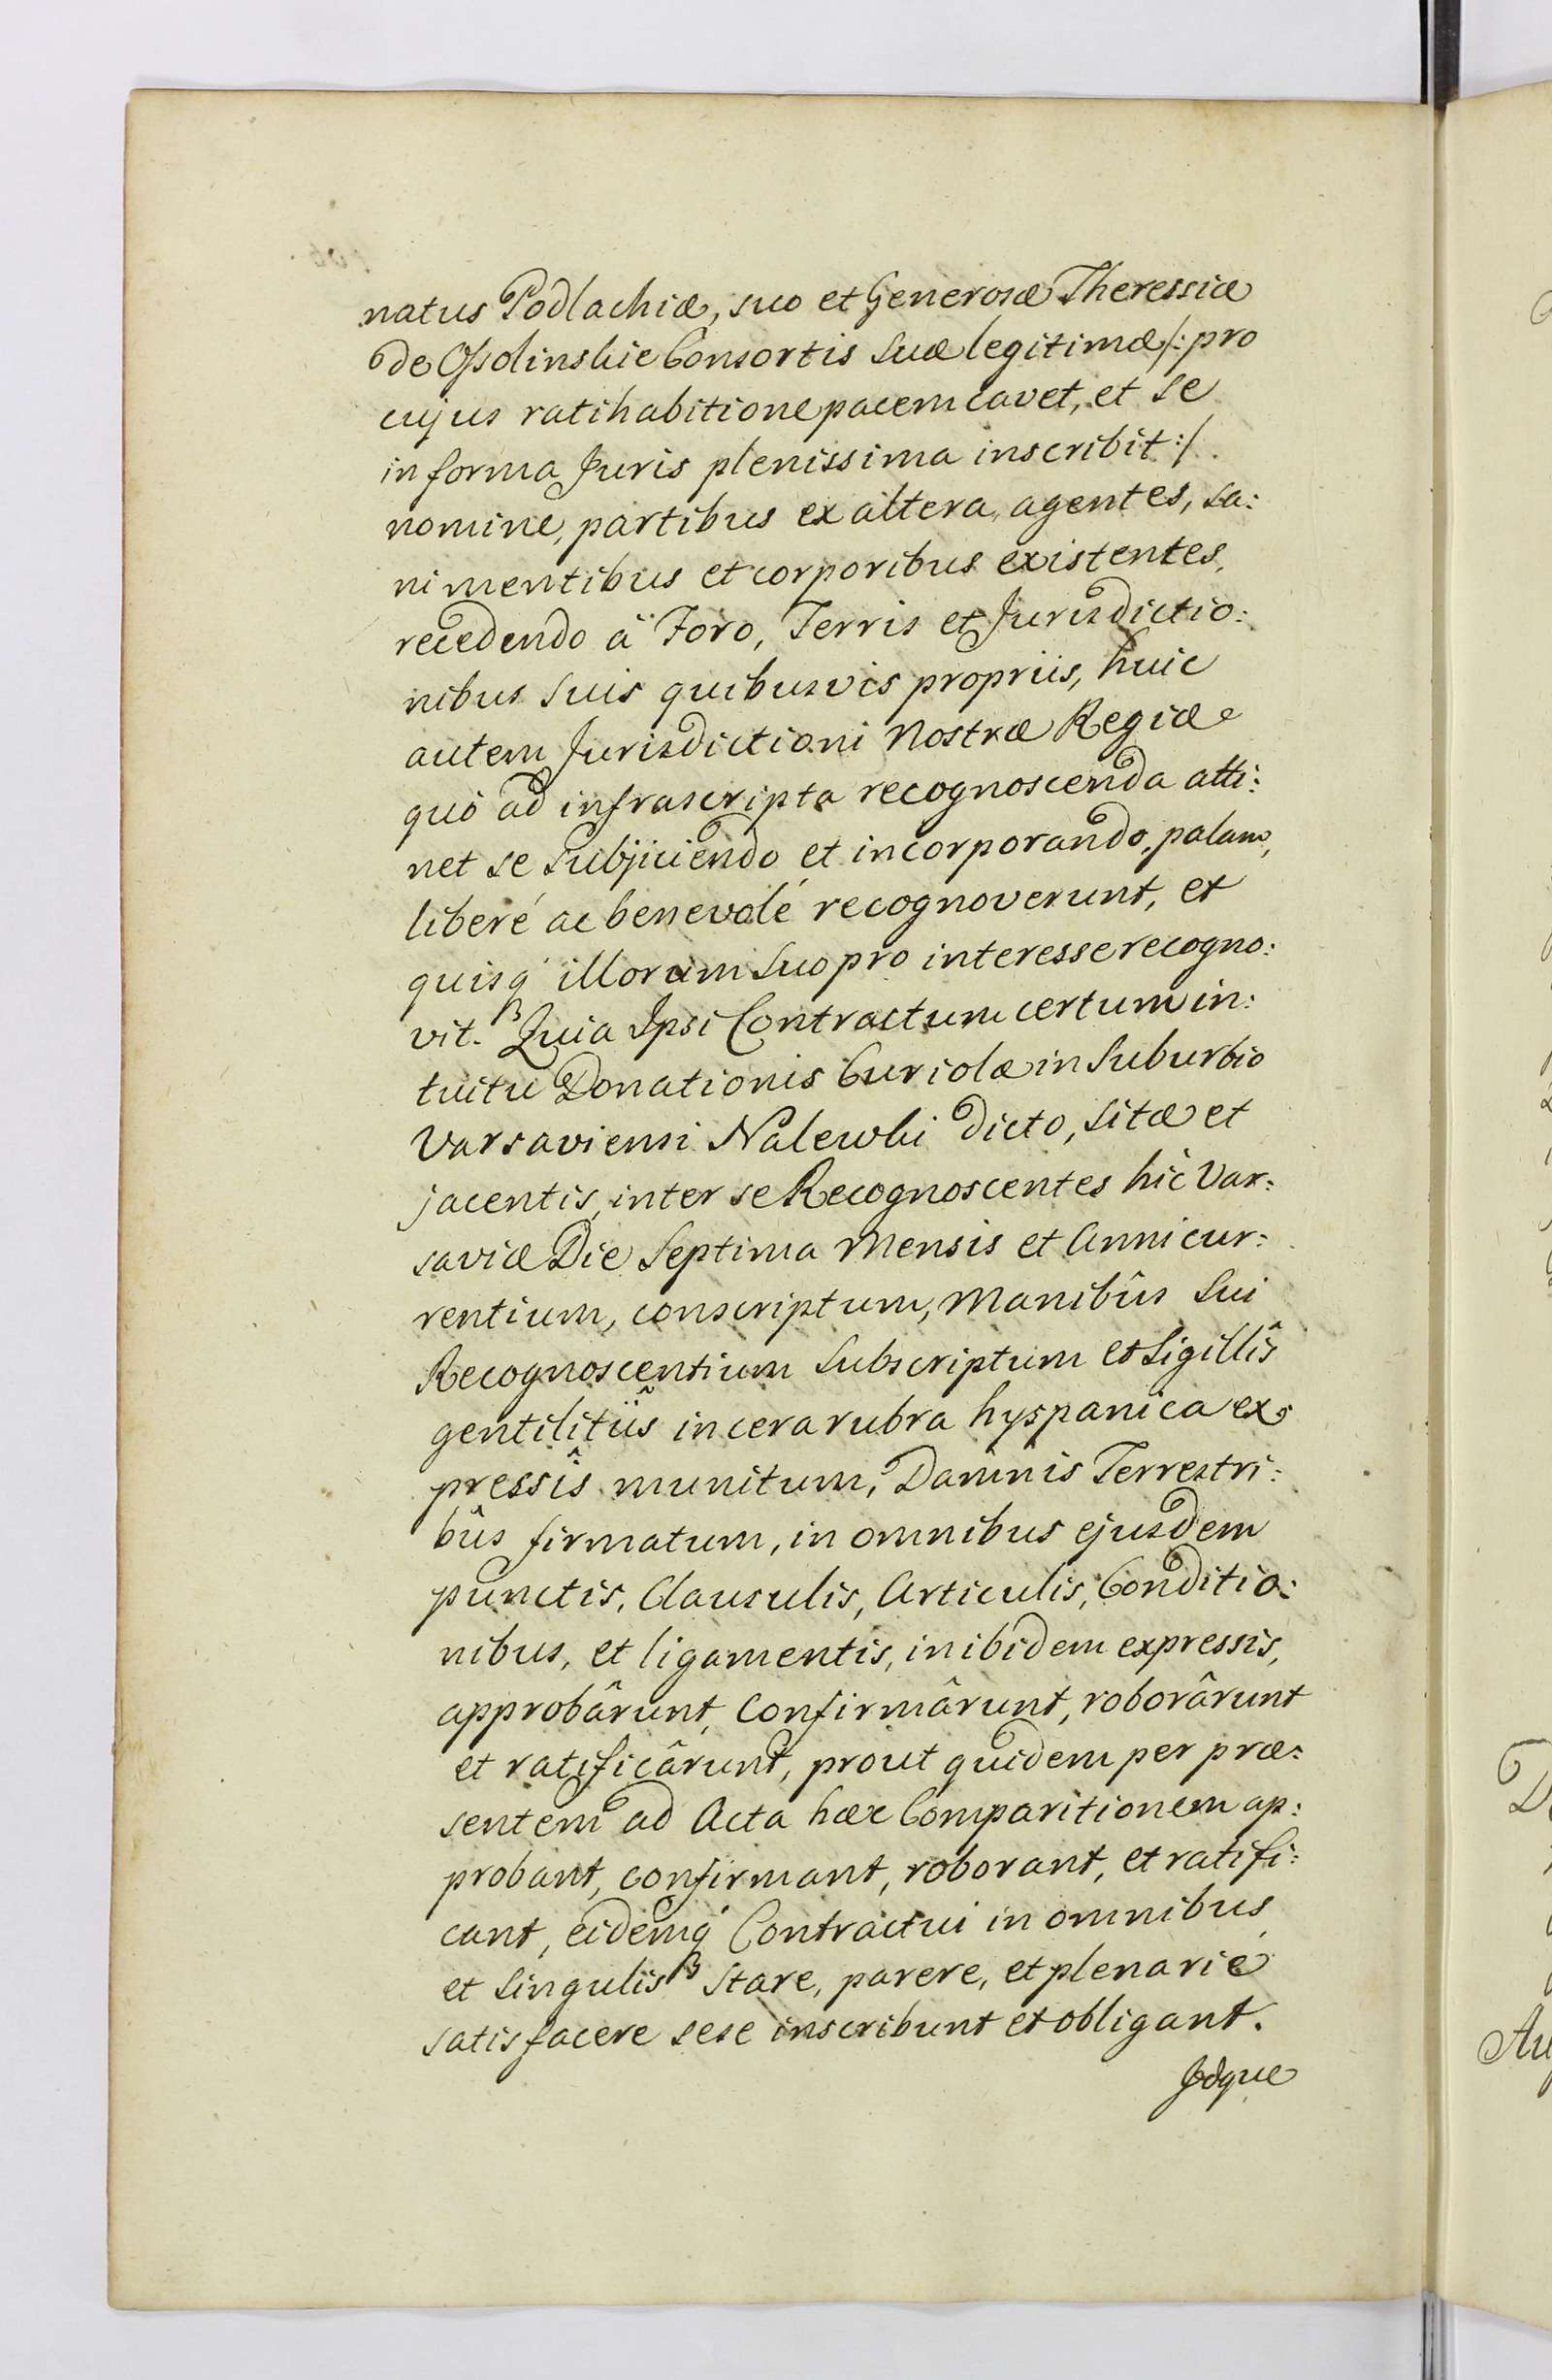 natus Podlachiæ, suo et Generosæ Theressiæ
de Ossolinskie Consortis Suæ legitimæ /: pro
cujus ratihabitione pacem cavet, et se
in forma Juris plenissima inscribit :/
nomine, partibus ex altera agentes, sa:
ni mentibus et corporibus existentes,
recedendo à Foro, Terris et Jurisdictio:
nibus Suis quibusvis propriis, huic
autem Jurisdictioni Nostræ Regiæ
quò ad infrascripta recognoscenda atti:
net se Subjiciendo et incorporando, palam,
liberé ac benevolé recognoverunt, et
quisq́ illorum Suo pro interesse recogno:
vit. Quia Ipsi Contractum certum in:
tuitu Donationis Curiolæ in Suburbio
Varsaviensi Nalewki dicto, Sitæ et
jacentis, inter se Recognoscentes hìc Var:
saviæ Die Septima Mensis et Anni cur:
rentium, conscriptum, Manibûs Sui
Recognoscentium Subscriptum et Sigillîs
gentilitiîs in cera rubra hyspanica ex:
pressîs munitum, Damnis Terrestri:
bûs firmatum, in omnibus ejusdem
punctis, Clausulis, Articulis, Conditio:
nibus, et ligamentis, inibidem expressis,
approbârunt, Confirmârunt, roborârunt
et ratificârunt, prout quidem per præ:
sentem ad Acta hæc Comparitionem ap:
probant, confirmant, roborant, et ratifi:
cant, eidemq́ Contractui in omnibus
et Singulis Stare, parere, et plenarié
satisfacere sese inscribunt et obligant.
Idque